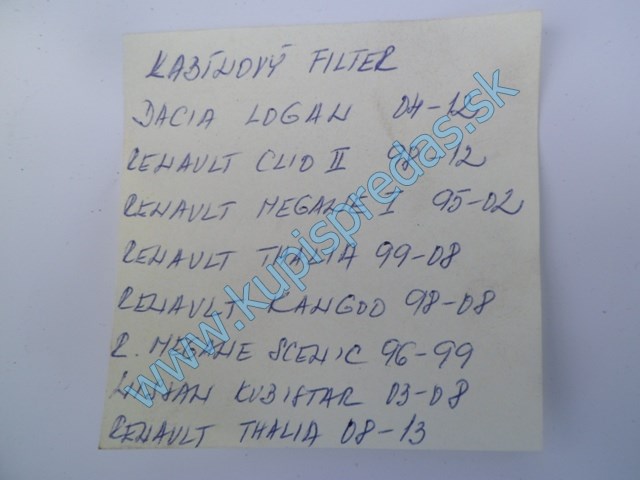 KABÍNOVÝ FILTER
DACIA LOGAN 04-12
RENAULT CLIO II 98-12
RENAULT MEGANE I 95-02
RENAULT THALIA 99-08
RENAULT KANGOO 98-08
R. MEGANE SCENIC 96-99
NISSAN KUBISTAR 03-08
RENAULT THALIA 08-13
www.kupispredas.sk